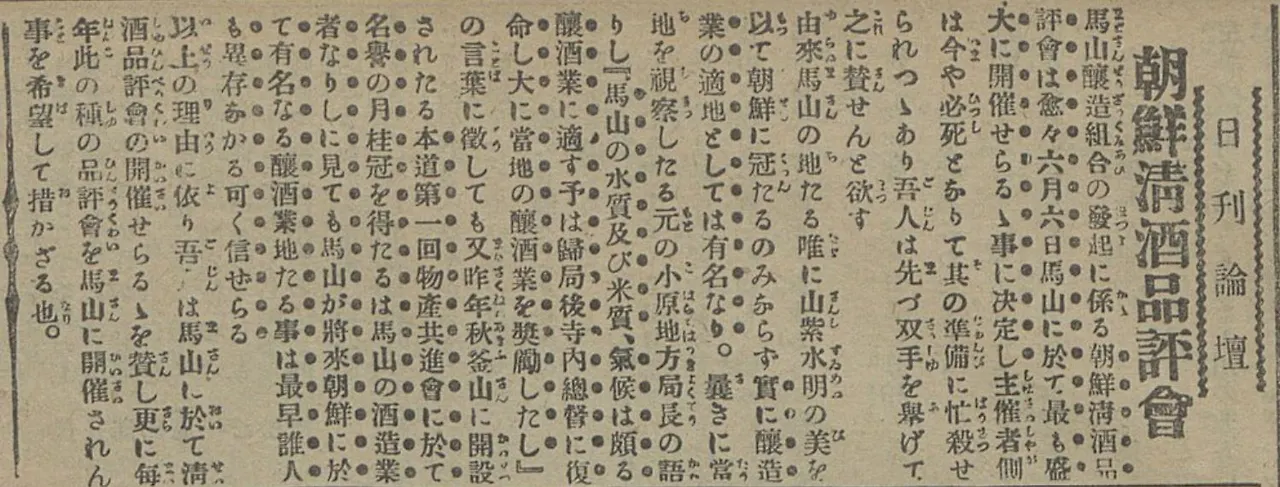 日刊論壇
朝鮮淸酒品評會
馬山釀造組合の發起に係る朝鮮淸酒品
評會は愈々六月六日馬山に於て最も盛
大に開催せらるゝ事に决定し主催者側
は今や必死となりて其の準備に忙殺せ
られつゝあり吾人は先づ双手を擧げて
之に贊せんと欲す
由來馬山の地たる唯に山紫水明の美を
以て朝鮮に冠たるのみならず實に釀造
業の適地としては有名なり。曩きに當
地を視察したる元の小原地方局長の語
りし『馬山の水質及び米質、氣候は頗る
釀酒業に適す予は歸局後寺內總督に復
命し大に當地の釀酒業を奬勵したし』
の言葉に徵しても又昨年秋釜山に開設
された る本道第一回物產共進會に於て
名譽の月桂冠を得たるは馬山の酒造業
者なりしに見ても馬山が將來朝鮮に於
て有名なる釀酒業地たる事は最早誰人
も異存なかる可く信せらる
以上の理由に依り吾人は馬山に於て淸
酒品評會の開催せらるゝを贊し更に每
年此の種の品評會を馬山に開催されん
事を希望して措かざる也。